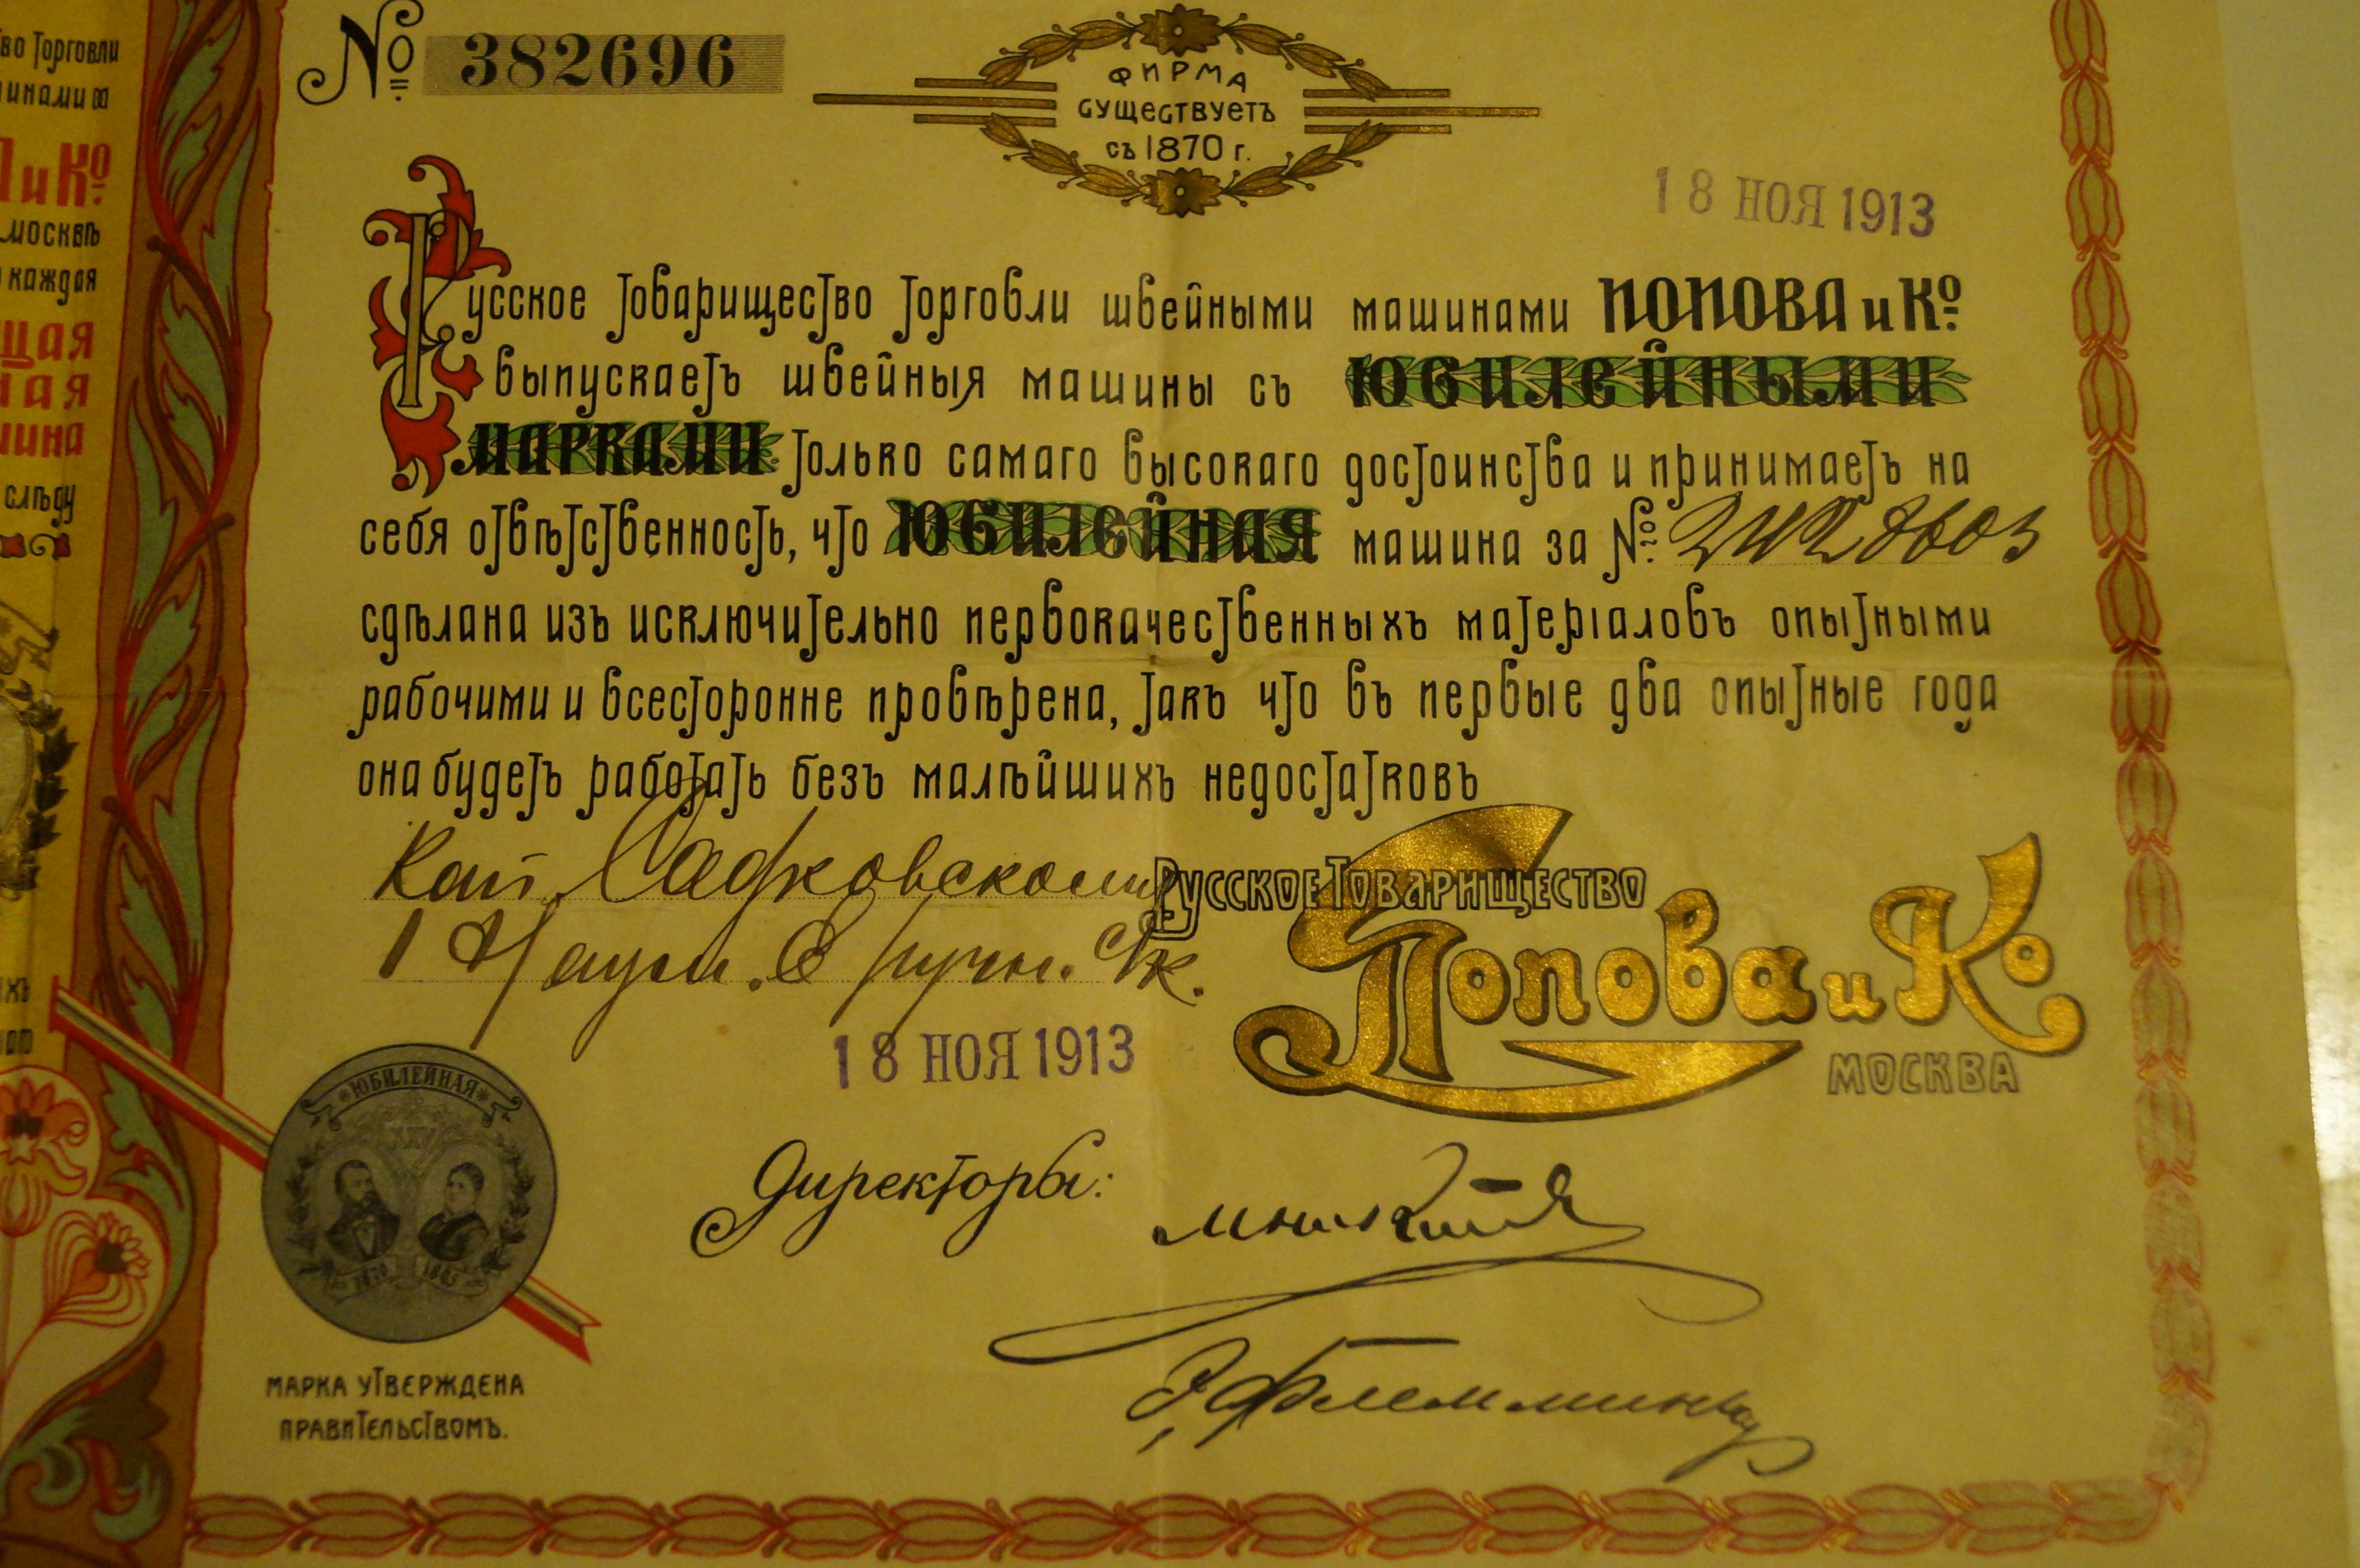 во Торговли
инами
и Ко
москвѣ
каждая
щая
ная
шина
слѣду
№ 382696
ФИРМА
СУЩЕСТВУЕТЪ
СЪ 1870 г.
18 НОЯ 1913
Русское Товарищество Торговли швейными машинами ПОПОВА и Ко
выпускаетъ швейныя машины съ ЮБИЛЕЙНЫМИ
МАРКАМИ только самаго высокаго достоинства и принимаетъ на
себя отвѣтственность, что ЮБИЛЕЙНАЯ машина за №
сдѣлана изъ исключительно первокачественныхъ матеріаловъ опытными
рабочими и всесторонне провѣрена, такъ что въ первые два опытные года
она будетъ работать безъ малѣйшихъ недостатковъ
РУССКОЕ ТОВАРИЩЕСТВО
Попова и Ко
МОСКВА
18 НОЯ 1913
Директоры:
ЮБИЛЕЙНАЯ
МАРКА УТВЕРЖДЕНА
ПРАВИТЕЛЬСТВОМЪ.